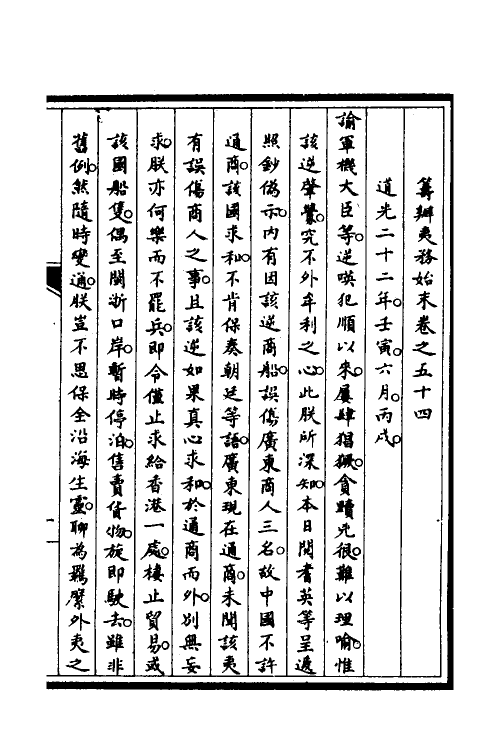 籌辦夷務始末卷之五十四
道光二十二年壬寅六月丙戌
諭軍機大臣等逆𠸄犯順以來屢肆猖獗貪黷兇很難以理喻惟
該逆肇釁究不外牟利之心此朕所深知本日閱耆英等呈遞
照鈔僞示內有因該逆商船誤傷廣東商人三名故中國不許
通商該國求和不肯保奏朝廷等語廣東現在通商未聞該夷
有誤傷商人之事且該逆如果真心求和於通商而外別無妄
求朕亦何樂而不罷兵即令僅止求給香港一處棲止貿易或
該國船隻偶至閩浙口岸暫時停泊售賣貨物旋即駛去雖非
舊例然隨時變通朕豈不思保全沿海生靈聊為羈縻外夷之